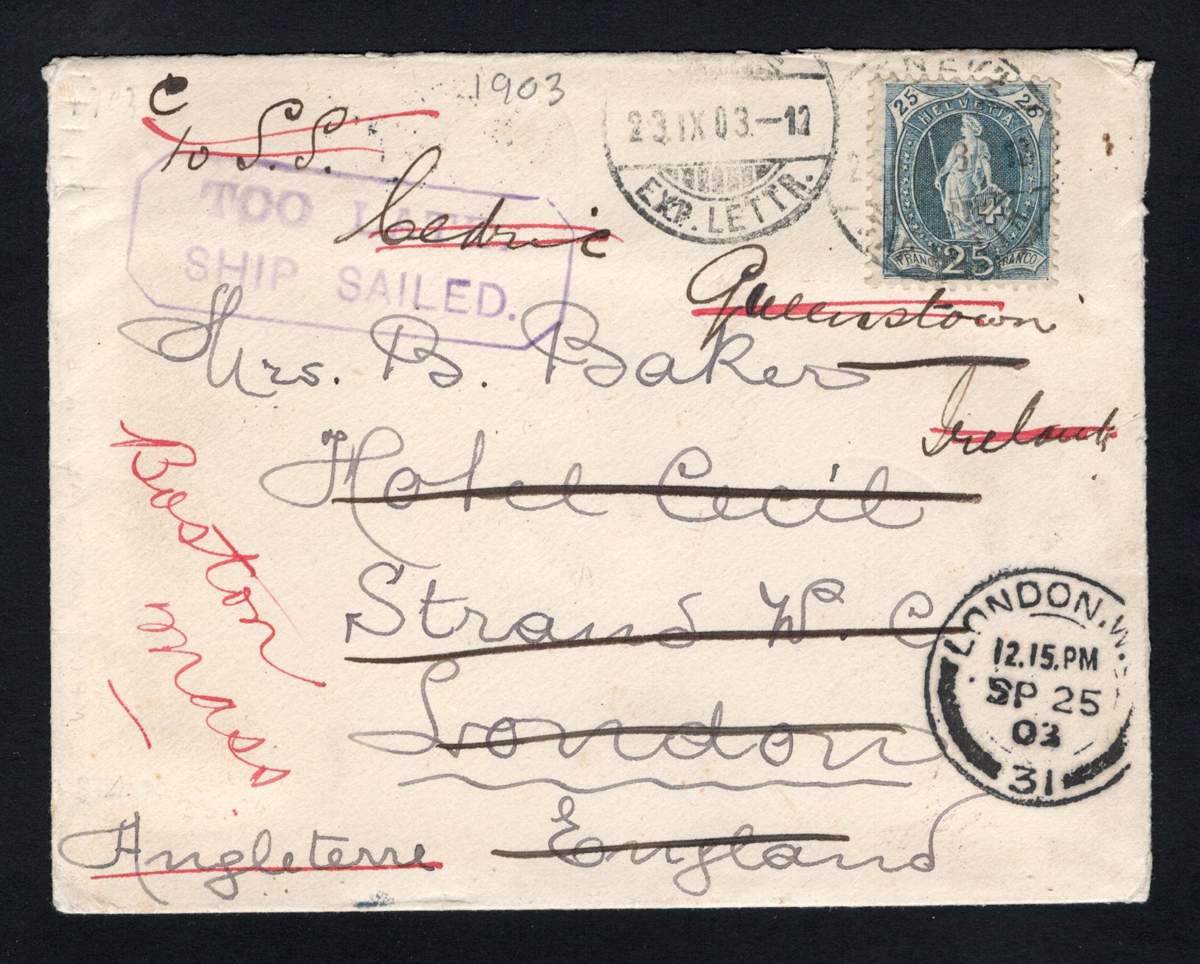 1903
c
to S.S.
Cedric
TOO LATE
SHIP SAILED.
23.IX 03.—12
EXP. LETTR.
25 HELVETIA 25
FRANCO 25 FRANCO
Queenstown
Ireland
Mrs. B. Baker
Hotel Cecil
Strand W. C
London
England
Angleterre
Boston
Mass
LONDON. W.
12.15. PM
SP 25
03
31